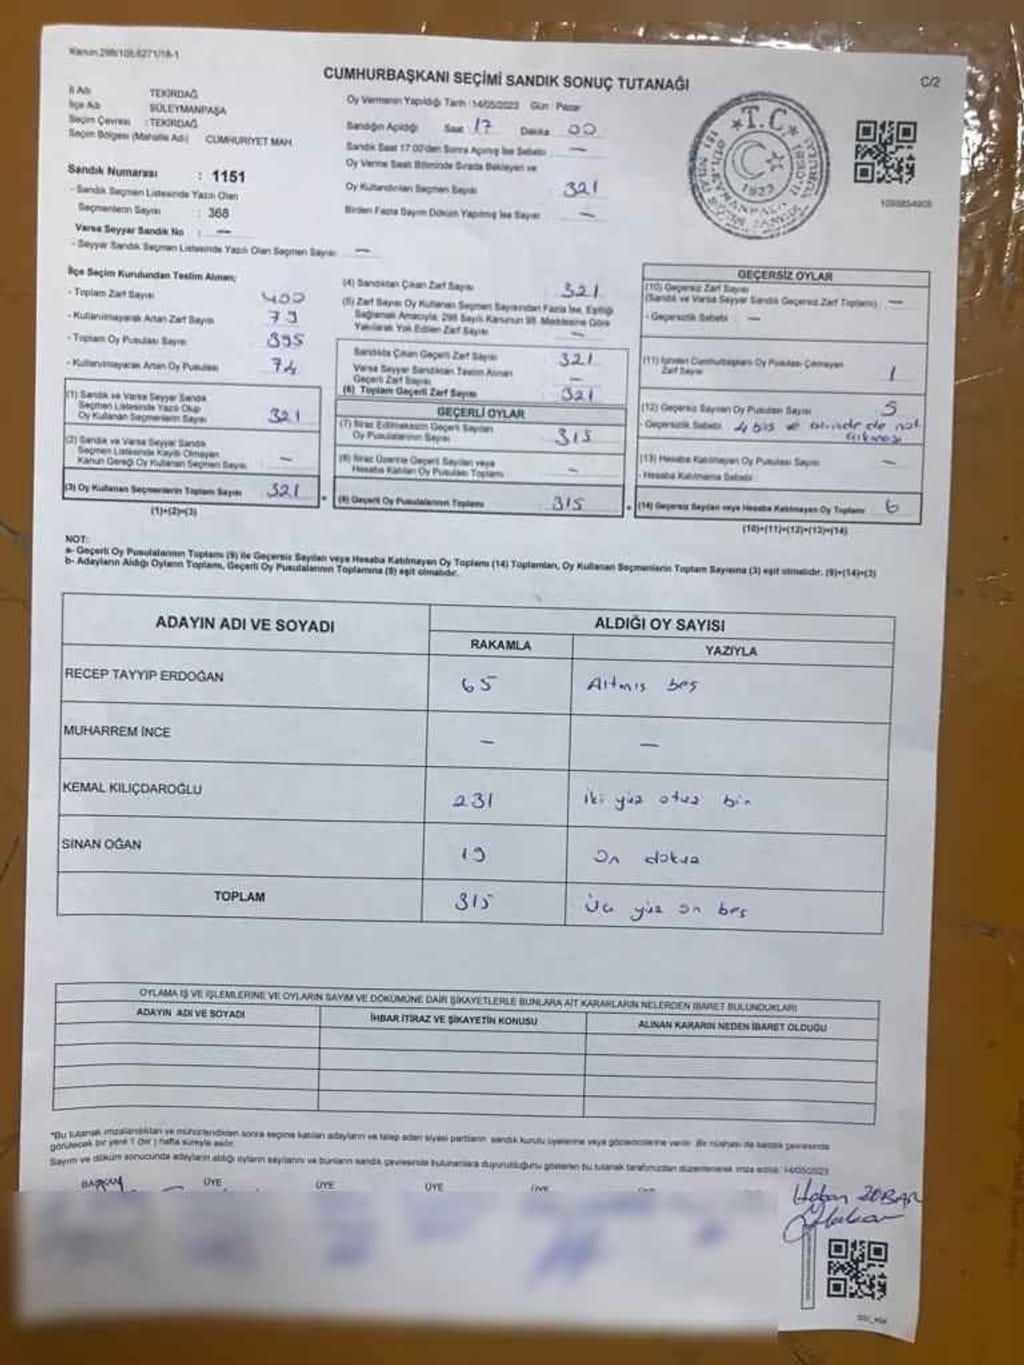 Kanun:298/105,6271/18-1
CUMHURBAŞKANI SEÇİMİ SANDIK SONUÇ TUTANAĞI
C/2
İl Adı TEKİRDAĞ
İlçe Adı SÜLEYMANPAŞA
Seçim Çevresi : TEKİRDAĞ
Seçim Bölgesi (Mahalle Adı) CUMHURİYET MAH
Sandık Numarası : 1151
- Sandık Seçmen Listesinde Yazılı Olan
Seçmenlerin Sayısı : 368
Varsa Seyyar Sandık No : —
- Seyyar Sandık Seçmen Listesinde Yazılı Olan Seçmen Sayısı: —
Oy Vermenin Yapıldığı Tarih :14/05/2023 Gün : Pazar
Sandığın Açıldığı Saat 17 Dakika 00
Sandık Saat 17:00'den Sonra Açılmış İse Sebebi : —
Oy Verme Saati Bitiminde Sırada Bekleyen ve
Oy Kullandırılan Seçmen Sayısı 321
Birden Fazla Sayım Döküm Yapılmış İse Sayısı —
T.C.
1923
1093854905
İlçe Seçim Kurulundan Teslim Alınan;
- Toplam Zarf Sayısı 400
- Kullanılmayarak Artan Zarf Sayısı 79
- Toplam Oy Pusulası Sayısı 395
- Kullanılmayarak Artan Oy Pusulası 74
(1) Sandık ve Varsa Seyyar Sandık
Seçmen Listesinde Yazılı Olup
Oy Kullanan Seçmenlerin Sayısı 321
(2) Sandık ve Varsa Seyyar Sandık
Seçmen Listesinde Kayıtlı Olmayan
Kanun Gereği Oy Kullanan Seçmen Sayısı —
(3) Oy Kullanan Seçmenlerin Toplam Sayısı 321
(1)+(2)=(3)
(4) Sandıktan Çıkan Zarf Sayısı 321
(5) Zarf Sayısı Oy Kullanan Seçmen Sayısından Fazla İse, Eşitliği
Sağlamak Amacıyla, 298 Sayılı Kanunun 98. Maddesine Göre
Yakılarak Yok Edilen Zarf Sayısı —
Sandıkta Çıkan Geçerli Zarf Sayısı 321
Varsa Seyyar Sandıktan Teslim Alınan
Geçerli Zarf Sayısı —
(6) Toplam Geçerli Zarf Sayısı 321
GEÇERLİ OYLAR
(7) İtiraz Edilmeksizin Geçerli Sayılan
Oy Pusulalarının Sayısı 315
(8) İtiraz Üzerine Geçerli Sayılan veya
Hesaba Katılan Oy Pusulası Toplamı —
(9) Geçerli Oy Pusulalarının Toplamı 315
GEÇERSİZ OYLAR
(10) Geçersiz Zarf Sayısı
(Sandık ve Varsa Seyyar Sandık Geçersiz Zarf Toplamı) —
- Geçersizlik Sebebi : —
(11) İçinden Cumhurbaşkanı Oy Pusulası Çıkmayan
Zarf Sayısı 1
(12) Geçersiz Sayılan Oy Pusulası Sayısı 5
- Geçersizlik Sebebi 4 boş ve birinde de not
çıkması
(13) Hesaba Katılmayan Oy Pusulası Sayısı —
- Hesaba Katılmama Sebebi
(14) Geçersiz Sayılan veya Hesaba Katılmayan Oy Toplamı 6
(10)+(11)+(12)+(13)=(14)
NOT:
a- Geçerli Oy Pusulalarının Toplamı (9) ile Geçersiz Sayılan veya Hesaba Katılmayan Oy Toplamı (14) Toplamları, Oy Kullanan Seçmenlerin Toplam Sayısına (3) eşit olmalıdır. (9)+(14)=(3)
b- Adayların Aldığı Oyların Toplamı, Geçerli Oy Pusulalarının Toplamına (9) eşit olmalıdır.
ADAYIN ADI VE SOYADI ALDIĞI OY SAYISI
RAKAMLA YAZIYLA
RECEP TAYYİP ERDOĞAN 65 Altmış beş
MUHARREM İNCE — —
KEMAL KILIÇDAROĞLU 231 iki yüz otuz bir
SİNAN OĞAN 19 On dokuz
TOPLAM 315 Üç yüz on beş
OYLAMA İŞ VE İŞLEMLERİNE VE OYLARIN SAYIM VE DÖKÜMÜNE DAİR ŞİKAYETLERLE BUNLARA AİT KARARLARIN NELERDEN İBARET BULUNDUKLARI
ADAYIN ADI VE SOYADI İHBAR İTİRAZ VE ŞİKAYETİN KONUSU ALINAN KARARIN NEDEN İBARET OLDUĞU
*Bu tutanak imzalandıktan ve mühürlendikten sonra seçime katılan adayların ve talep eden siyasi partilerin sandık kurulu üyelerine veya gözlemcilerine verilir. Bir nüshası da sandık çevresinde
görülecek bir yere 1 (bir) hafta süreyle asılır.
Sayım ve döküm sonucunda adayların aldığı oyların sayılarını ve bunların sandık çevresinde bulunanlara duyurulduğunu gösteren bu tutanak tarafımızdan düzenlenerek imza edildi. 14/05/2023
BAŞKAN ÜYE ÜYE ÜYE ÜYE